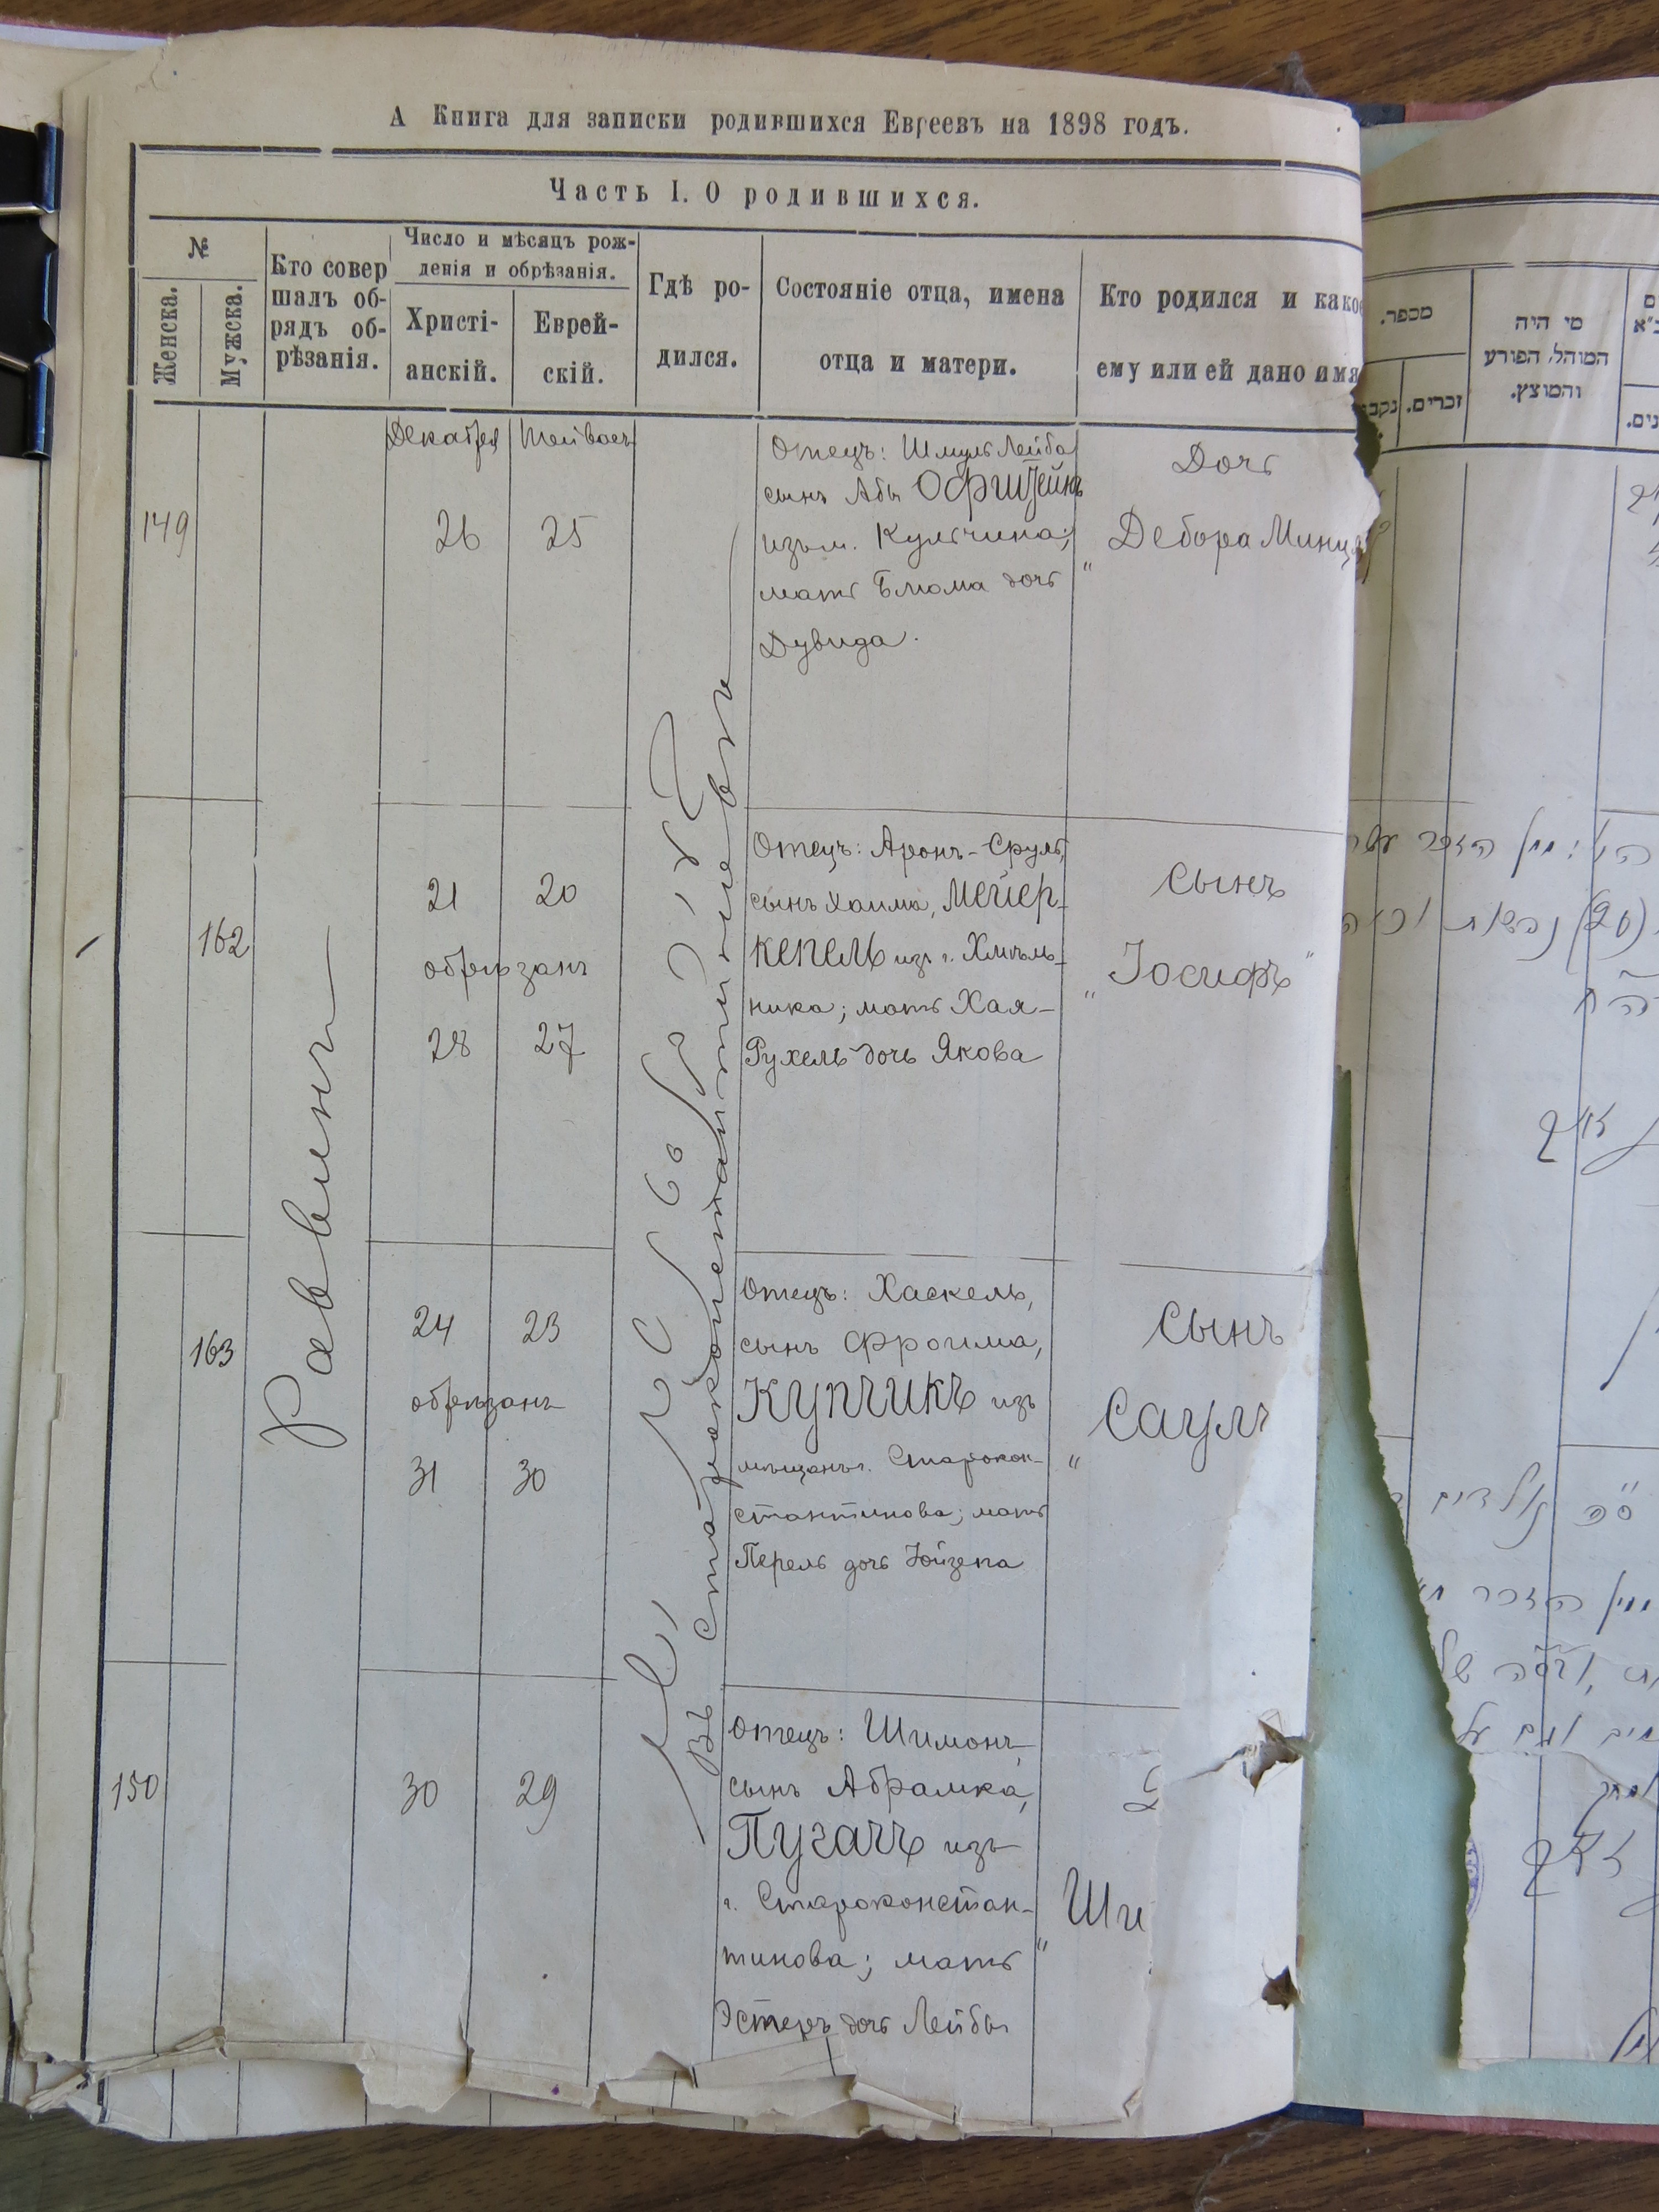 А Книга для записки родившихся Евреевъ на 1898 годъ.
Часть I. О родившихся.
№
Женска.
Мужска.
Кто совер
шалъ об-
рядъ об-
рѣзанія.
Число и мѣсяцъ рож-
денія и обрѣзанія.
Христі-
анскій.
Еврей-
скій.
Гдѣ ро-
дился.
Состояніе отца, имена
отца и матери.
Кто родился и какое
ему или ей дано имя
מספר.
זכרים.
נקב
מי היה
המוהל, הפורע
והמוצץ.
Раввинъ
въ Староконстантиновѣ
149
Декабря
Тейвесъ
26
25
Отецъ: Шмуль Лейба
сынъ Абы Офштейнъ
изъ м. Кульчина;
мать Блюма дочь
Дувида.
Дочь
Дебора Минця
162
21
20
обрѣзанъ
28
27
Отецъ: Аронъ-Сруль,
сынъ Хаима, Мейер-
кепель изъ г. Хмѣль-
ника; мать Хая-
Рухель дочь Якова
Сынъ
"Іосифъ"
163
24
23
обрѣзанъ
31
30
Отецъ: Хаскель,
сынъ Фроима,
Купчикъ изъ
мѣщанъ г. Старокон-
стантинова; мать
Перель дочь Іойзепа
Сынъ
"Саулъ
150
30
29
Отецъ: Шимонъ,
сынъ Абрамка,
Пугачъ изъ
г. Староконстан-
тинова; мать
Эстеръ дочь Лейбы
"Ши